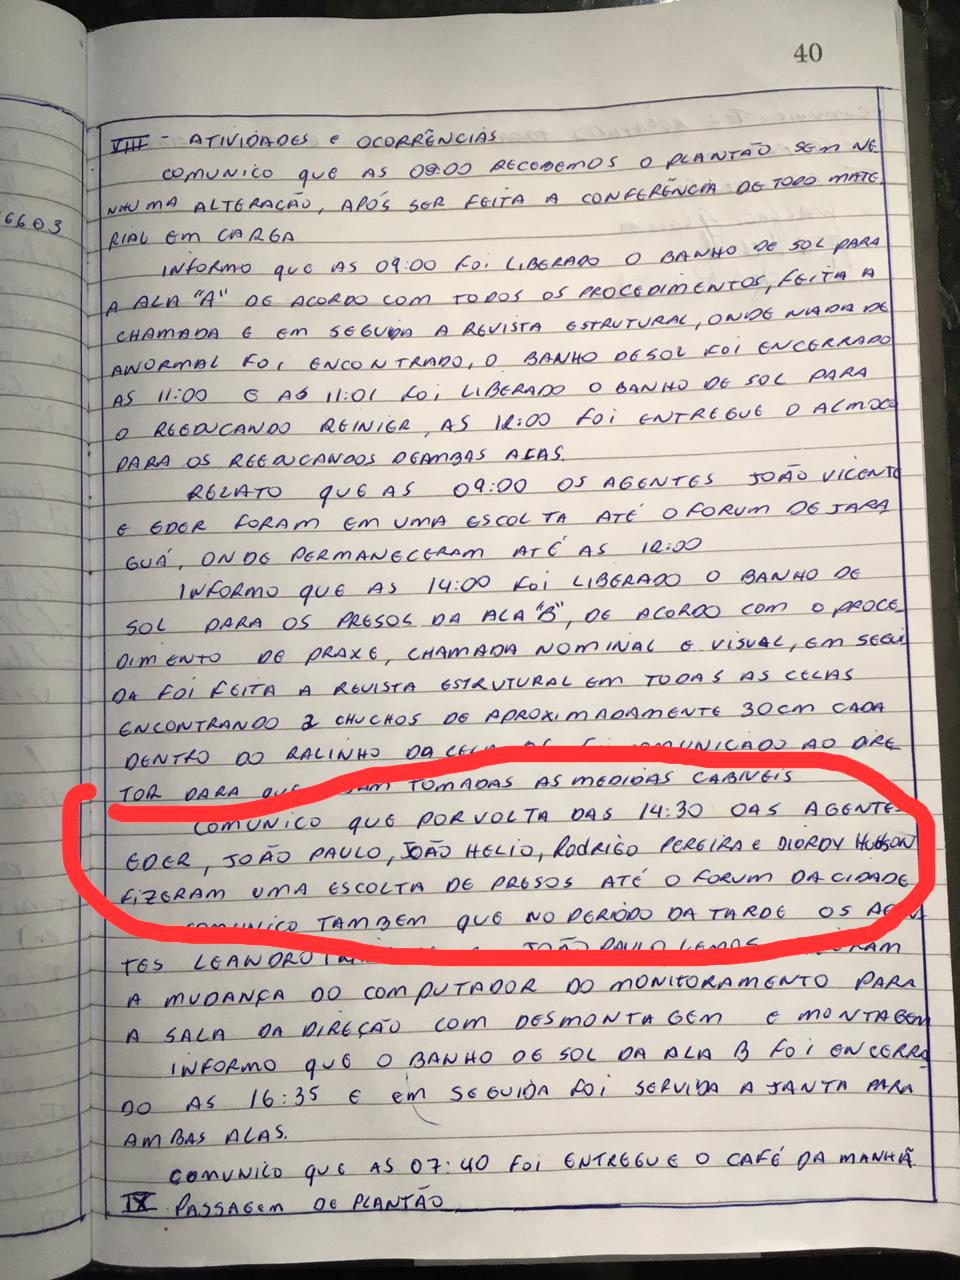 40
6603
VIII - ATIVIDADES e OCORRÊNCIAS
COMUNICO que AS 08:00 RECEBEMOS O PLANTÃO SEM NE
NHUMA ALTERAÇÃO, APÓS SER FEITA A CONFERÊNCIA DE TODO MATE
RIAL EM CARGA
INFORMO que AS 09:00 FOI LIBERADO O BANHO DE SOL PARA
A ALA "A" DE ACORDO COM TODOS OS PROCEDIMENTOS, FEITA A
CHAMADA E EM SEGUIDA A REVISTA ESTRUTURAL, ONDE NADA DE
ANORMAL FOI ENCONTRADO, O BANHO DE SOL FOI ENCERRADO
AS 11:00 E AS 11:01 FOI LIBERADO O BANHO DE SOL PARA
O REEDUCANDO REINIER, AS 12:00 FOI ENTREGUE O ALMOCO
PARA OS REEDUCANDOS DEAMBAS ALAS.
RELATO que AS 09:00 OS AGENTES JOÃO VICENTE
E EDER FORAM EM UMA ESCOLTA ATÉ O FORUM DE JARA
GUÁ, ONDE PERMANECERAM ATÉ AS 12:00
INFORMO que AS 14:00 FOI LIBERADO O BANHO DE
SOL PARA OS PRESOS DA ALA "B", DE ACORDO COM O PROCE-
DIMENTO DE PRAXE, CHAMADA NOMINAL E VISUAL, EM SEGUI
DA FOI FEITA A REVISTA ESTRUTURAL EM TODAS AS CELAS
ENCONTRANDO 2 CHUCHOS DE APROXIMADAMENTE 30CM CADA
DENTRO DO RALINHO DA COMUNICADO AO DIRE
TOR PARA TOMADAS AS MEDIDAS CABIVEIS
COMUNICO que POR VOLTA DAS 14:30 OAS AGENTES
EDER, JOÃO PAULO, JOÃO HELIO, RODRIGO PEREIRA E DIORDY HUDSON
FIZERAM UMA ESCOLTA DE PRESOS ATÉ O FORUM DA CIDADE
COMUNICO TAMBEM que NO PERIODO DA TARDE OS AGEN
TES LEANDRO JOÃO PAULO LEMOS
A MUDANÇA DO COMPUTADOR DO MONITORAMENTO PARA
A SALA DA DIREÇÃO COM DESMONTAGEM E MONTAGEM
INFORMO que O BANHO DE SOL DA ALA B FOI ENCERRA
DO AS 16:35 E em SEGUIDA FOI SERVIDA A JANTA PARA
AMBAS ALAS.
COMUNICO que AS 07:40 FOI ENTREGUE O CAFÉ DA MANHÃ
IX PASSAGEM DE PLANTÃO